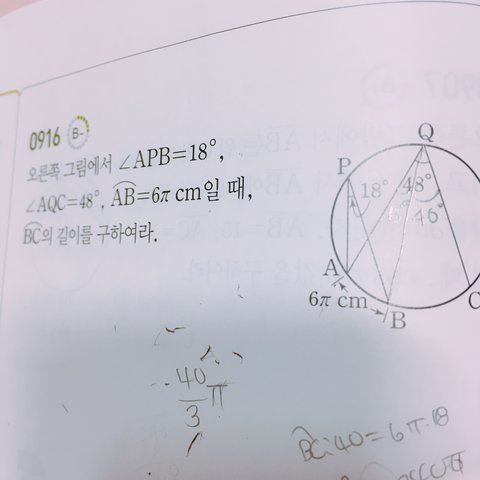 0916 B-
오른쪽 그림에서 ∠APB=18°,
∠AQC=48°, AB=6π cm일 때,
BC의 길이를 구하여라.
Q
P
18° 48°
A
6π cm
B
C
40/3 π
BC:40=6π:18